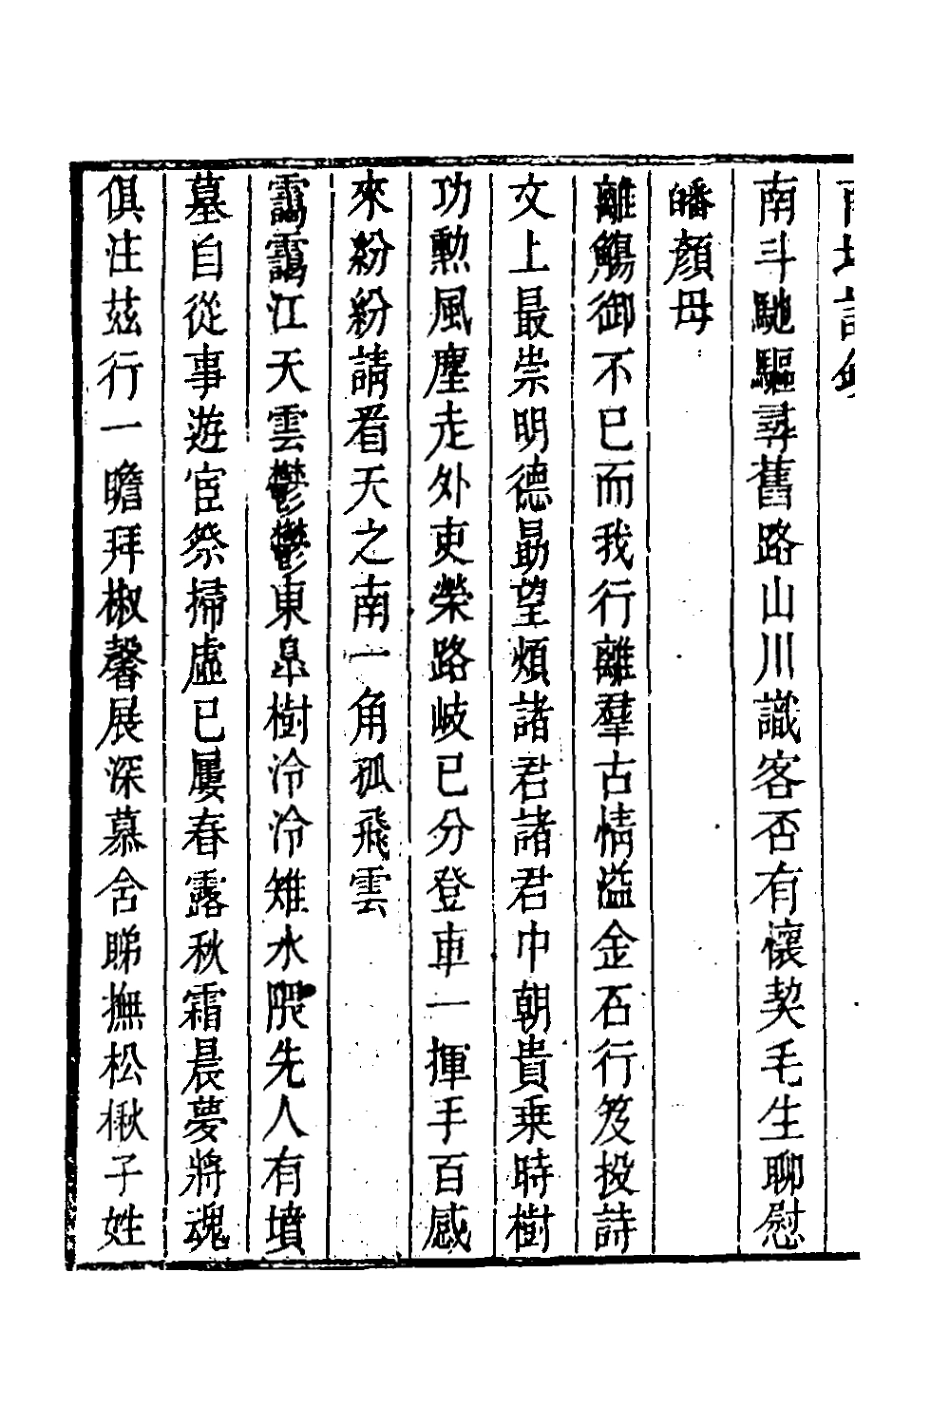 南斗馳驅尋舊路山川識客否有懷契毛生聊慰
皤顏母
離觴御不已而我行離羣古情溢金石行笈投詩
文上最崇明德勗望煩諸君諸君巾朝貴乗時樹
功勲風塵走外吏榮路岐已分登車一揮手百感
來紛紛請看天之南一角孤飛雲
靄靄江天雲鬱鬱東臯樹泠泠雉水隈先人有墳
墓自從事遊宦祭掃虛已屢春露秋霜晨夢將魂
俱注兹行一瞻拜椒馨展深慕含睇撫松楸子姓